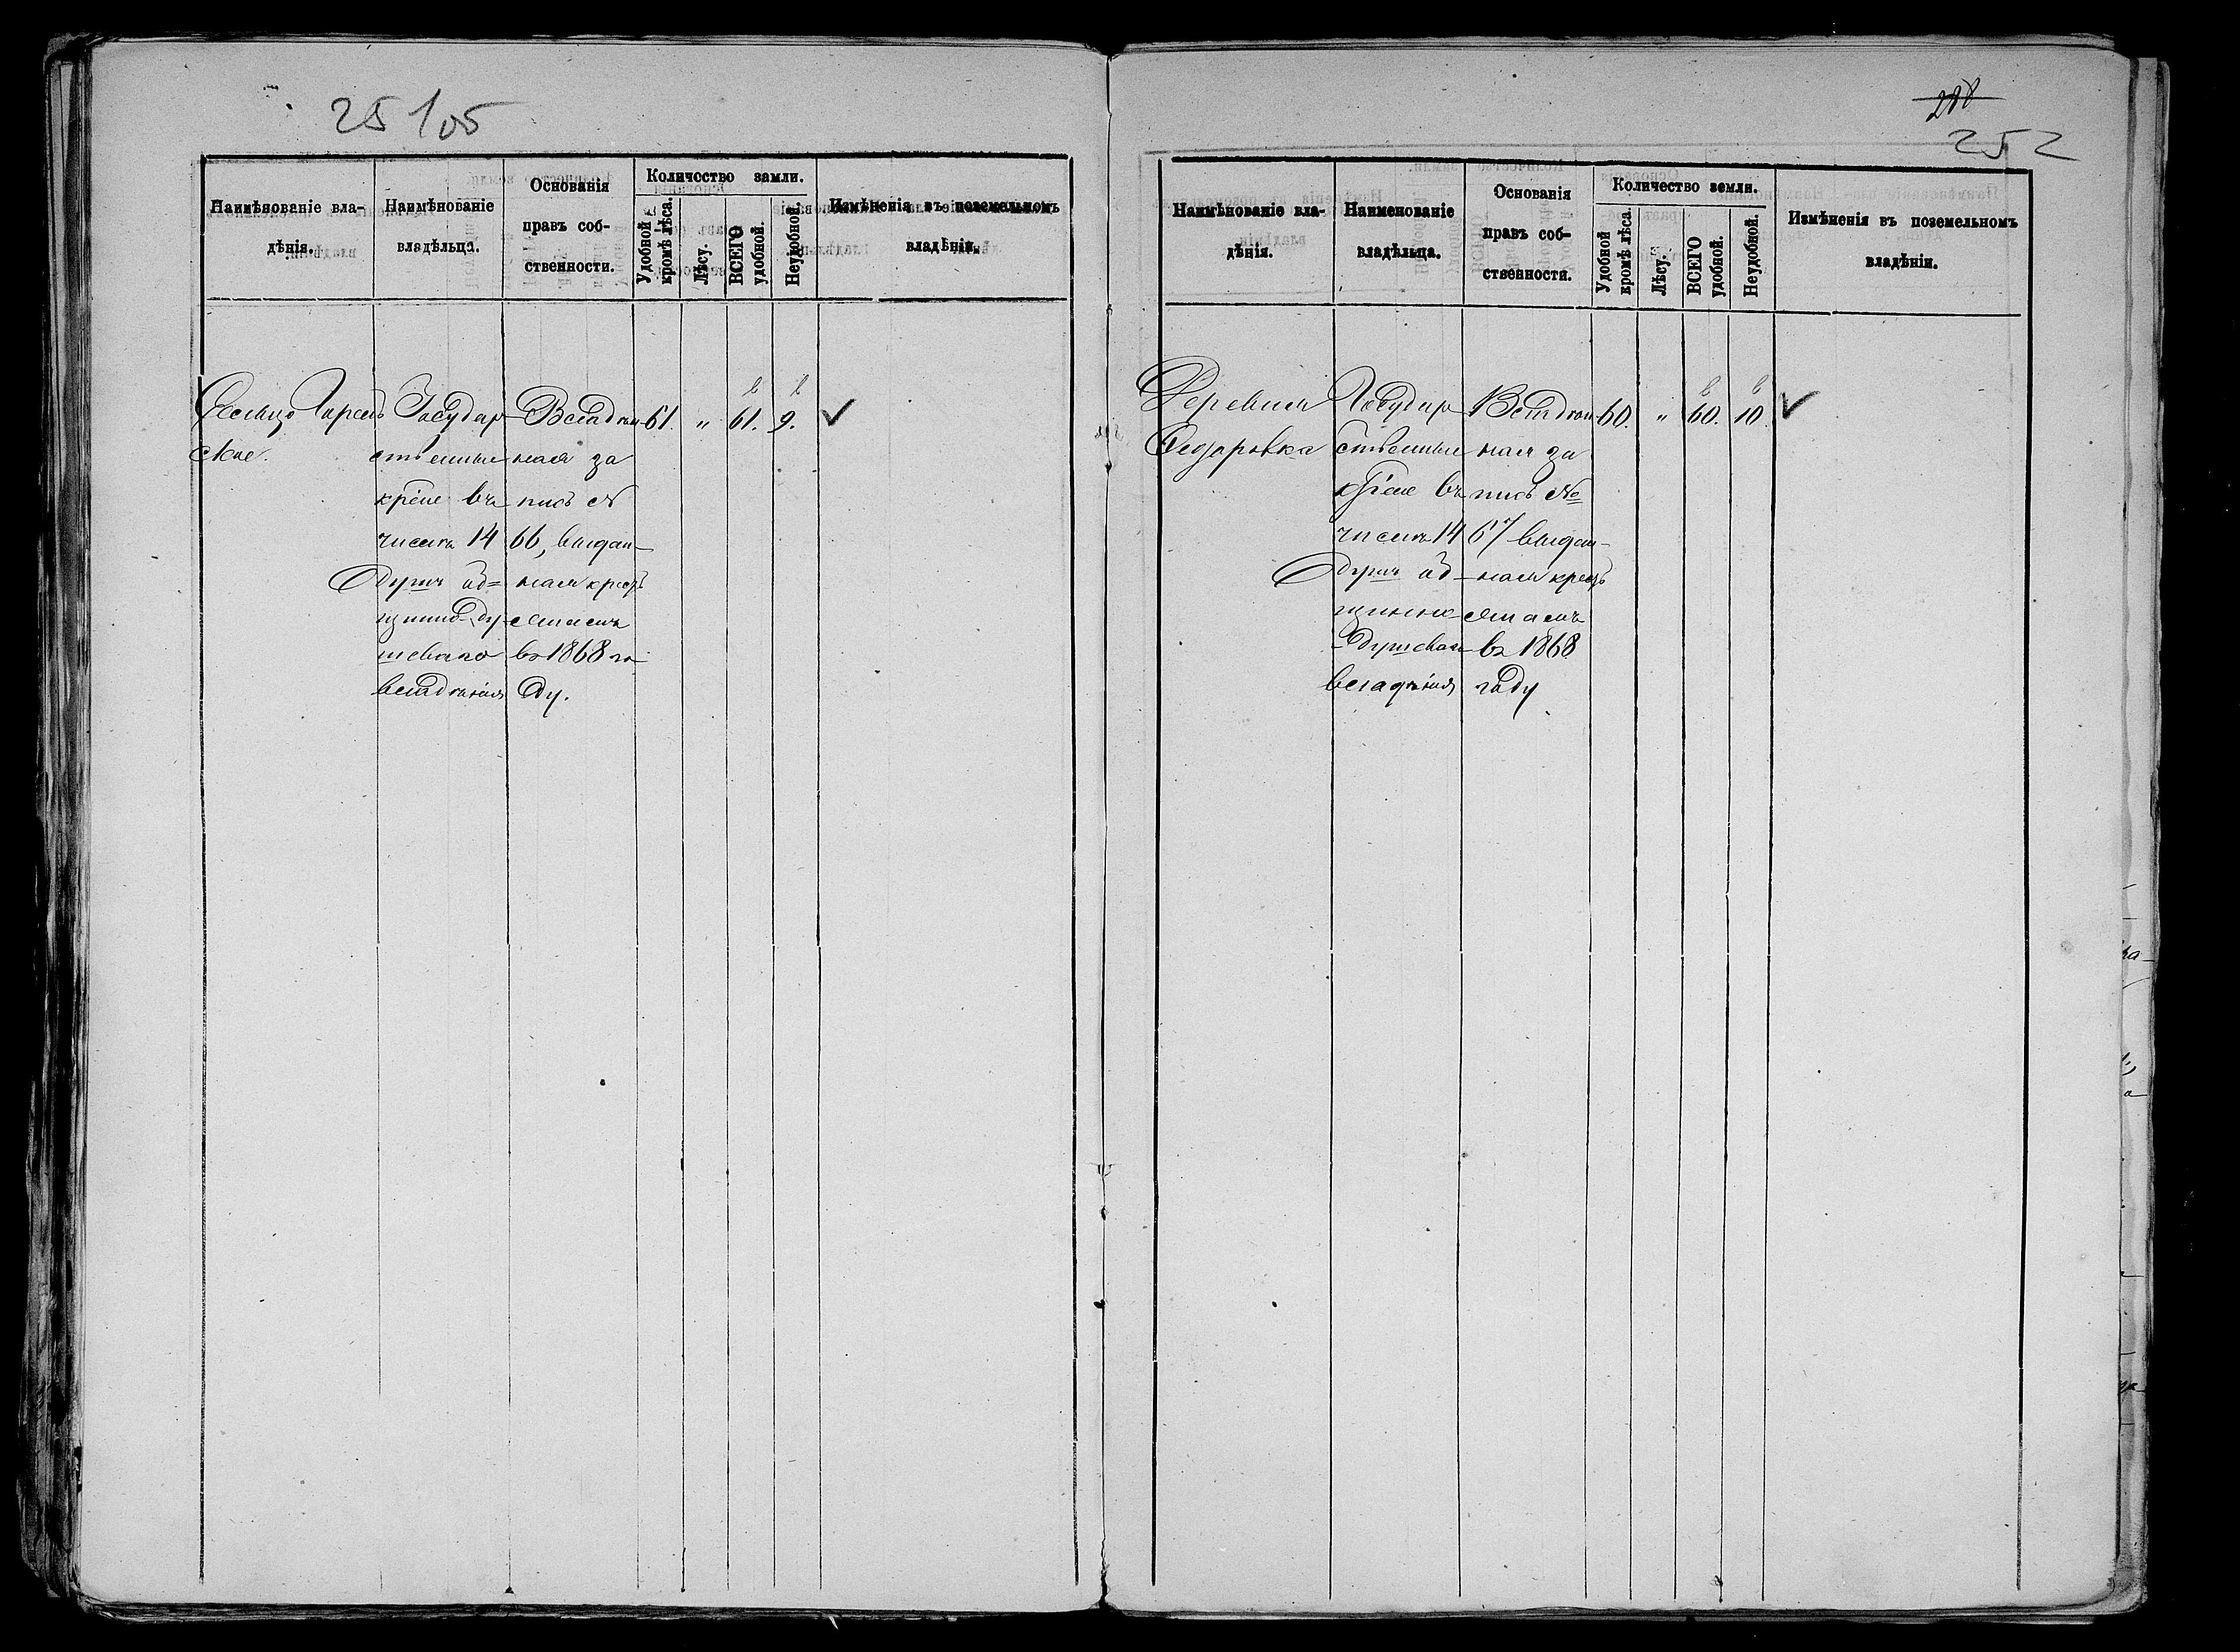 25 105
Наимѣнованіе вла-
дѣнія.
Наимѣнованіе
владѣльца.
Основанія
правъ соб-
ственности.
Количество земли.
Удобной
кромѣ лѣса.
Лѣсу.
ВСЕГО
удобной.
Неудобной.
Измѣненія въ поземельномъ
владѣніи.
Сельцо
ское.
Государ
ственные
кр-іане въ
числѣ 14
Душъ об=
щинно-ду
шеваго
владѣнія
Владѣн-
ная за
пись №
66, выдан-
ная крест
янамъ
въ 1868 го
ду.
61.
"
61.
9.
288
252
Наимѣнованіе вла-
дѣнія.
Наименованіе
владѣльца.
Основанія
правъ соб-
ственности.
Количество земли.
Удобной
кромѣ лѣса.
Лѣсу.
ВСЕГО
удобной.
Неудобной.
Измѣненія въ поземельномъ
владѣніи.
Деревня
Федоровка
Государ
ственные
числѣ 14
Душъ об-
владѣнія
Владѣн
ная за
пись №
67 выдан-
ная крест
янамъ
въ 1868
году
60.
"
60.
10.